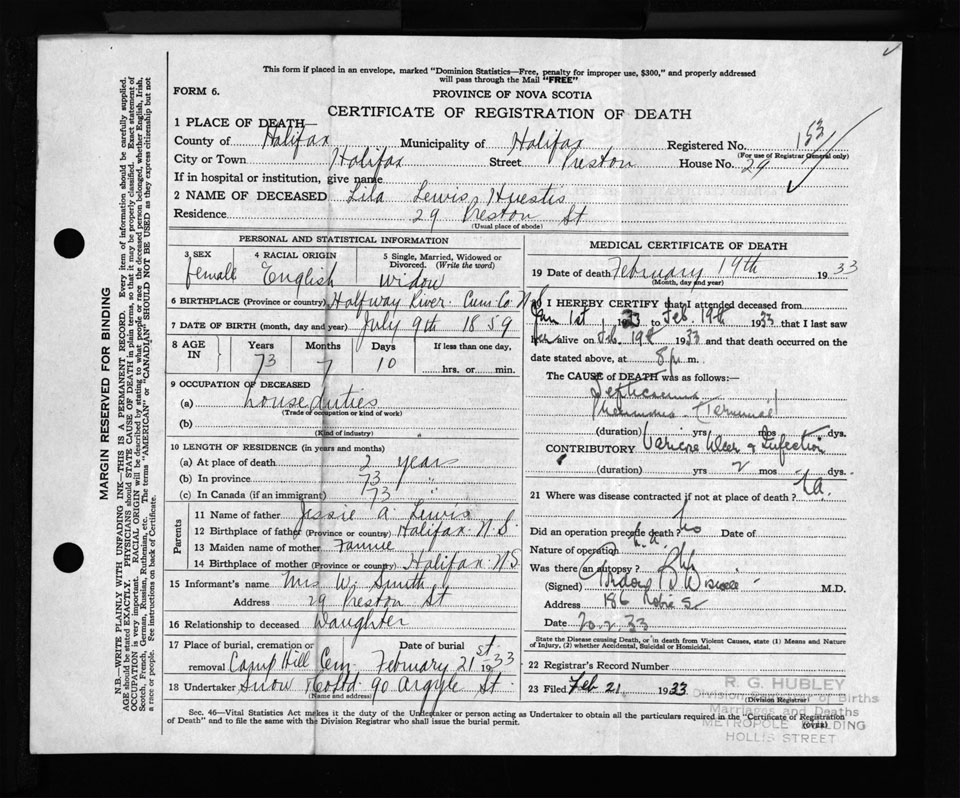 This form if placed in an envelope, marked "Dominion Statistics—Free, penalty for improper use, $300," and properly addressed
will pass through the Mail "FREE"
FORM 6.
PROVINCE OF NOVA SCOTIA
CERTIFICATE OF REGISTRATION OF DEATH
1 PLACE OF DEATH—
County of Halifax Municipality of Halifax Registered No. 153
(For use of Registrar General only)
City or Town Halifax Street Preston House No. 29
If in hospital or institution, give name
2 NAME OF DECEASED Lila Lewis Huestis
Residence 29 Preston St
(Usual place of abode)
PERSONAL AND STATISTICAL INFORMATION
3 SEX 4 RACIAL ORIGIN 5 Single, Married, Widowed or
Divorced. (Write the word)
female English widow
6 BIRTHPLACE (Province or country) Halfway River Cum. Co. N.S.
7 DATE OF BIRTH (month, day and year) July 9th 1859
8 AGE IN Years Months Days If less than one day,
73 7 10 hrs. or min.
9 OCCUPATION OF DECEASED
(a) house duties
(Trade of occupation or kind of work)
(b)
(Kind of industry)
10 LENGTH OF RESIDENCE (in years and months)
(a) At place of death 2 years
(b) In province 73 "
(c) In Canada (if an immigrant) 73 "
Parents
11 Name of father Jessie A. Lewis
12 Birthplace of father (Province or country) Halifax N.S.
13 Maiden name of mother Fannie
14 Birthplace of mother (Province or country) Halifax N.S
15 Informant's name Mrs W. Smith
Address 29 Preston St
16 Relationship to deceased Daughter
17 Place of burial, cremation or removal Date of burial
Camp Hill Cem. February 21st 1933
18 Undertaker Snow & Co Ltd 90 Argyle St
(Name and address)
MEDICAL CERTIFICATE OF DEATH
19 Date of death February 19th 1933
(Month, day and year)
20 I HEREBY CERTIFY that I attended deceased from
Jan 1st, 1933 to Feb. 19th 1933 that I last saw
her alive on Feb. 19th 1933 and that death occurred on the
date stated above, at 8 p. m.
The CAUSE of DEATH was as follows:—
Septicaemia
Pneumonia (Terminal)
(duration) yrs mos dys.
CONTRIBUTORY Varicose Ulcer & Infection
(duration) yrs 2 mos dys.
21 Where was disease contracted if not at place of death?
Did an operation precede death? No Date of
Nature of operation
Was there an autopsy?
(Signed) M.D.
Address 186
Date 20.2.33
State the Disease causing Death, or in death from Violent Causes, state (1) Means and Nature
of Injury, (2) whether Accidental, Suicidal or Homicidal.
22 Registrar's Record Number
23 Filed Feb 21 1933
(Division Registrar)
R. G. HUBLEY
Division Registrar of Births
Marriages and Deaths
METROPOLE BUILDING
HOLLIS STREET
Sec. 46—Vital Statistics Act makes it the duty of the Undertaker or person acting as Undertaker to obtain all the particulars required in the "Certificate of Registration
of Death" and to file the same with the Division Registrar who shall issue the burial permit.
(OVER)
MARGIN RESERVED FOR BINDING
N.B.—WRITE PLAINLY WITH UNFADING INK—THIS IS A PERMANENT RECORD. Every item of information should be carefully supplied.
AGE should be stated EXACTLY. PHYSICIANS should STATE CAUSE OF DEATH in plain terms, so that it may be properly classified. Exact statement of
OCCUPATION is very important. RACIAL ORIGIN will be described by stating to what people or race the deceased person belonged, whether English, Irish,
Scotch, French, German, Russian, Ruthenian, etc. The terms "AMERICAN" or "CANADIAN" SHOULD NOT BE USED as they express citizenship but not
a race or people. See instructions on back of Certificate.